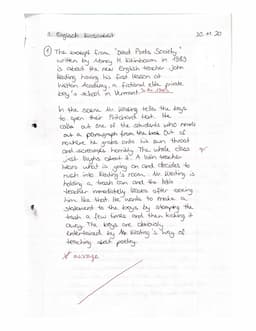 20.11.20
① The excerpt from "Dead Poets Society"
written by Nancy H. Kleinbaum in 1989
is about the new English teacher John
Keating having his first lesson at
Welton Academy, a fictional elite private
boy's school in Vermont
In the scene Mr. Keating tells the boys
to open their Pritchard text. He
calls out one of the students who reads
out a paragraph from the book. Out of
nowhere he grabs onto his own throat
and screams horribly. The whole class
just laughs about it. A Latin teacher
hears what is going on and decides to
rush into Keating's room. Mr. Keating is
holding a trash can and the Latin
teacher immediately leaves after seeing
him like that. He wants to make a
statement to the boys by stomping the
trash a few times and then kicking it
away. The boys are obviously
entertained by Mr Keating's way of
teaching about poetry.